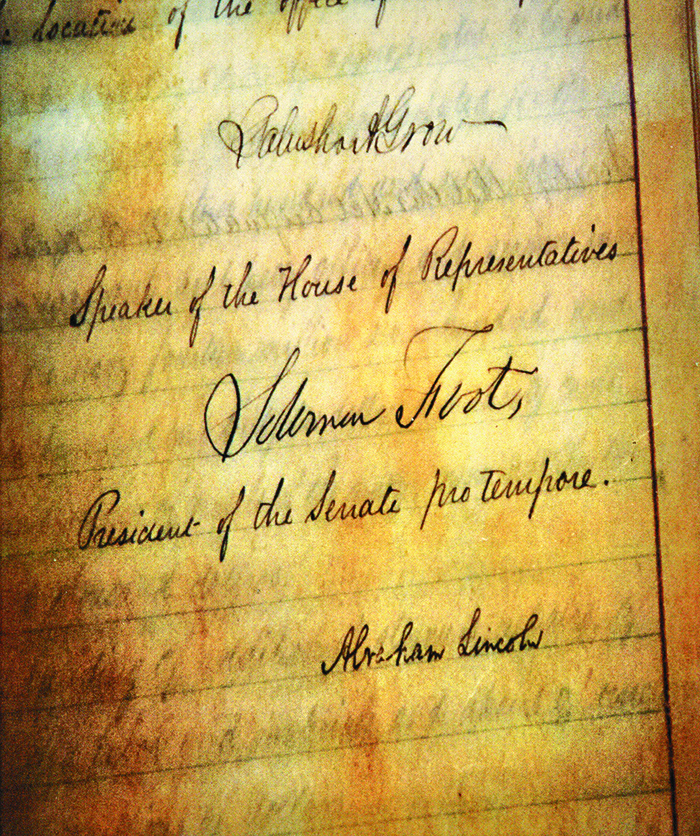 Location of the office of
Galusha A Grow
Speaker of the House of Representatives
Solomon Foot,
President of the Senate pro tempore.
Abraham Lincoln